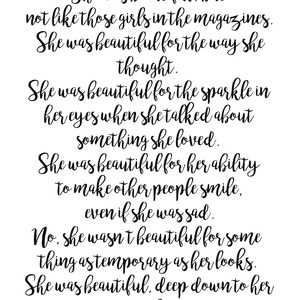 not like those girls in the magazines.
She was beautiful for the way she
thought.
She was beautiful for the sparkle in
her eyes when she talked about
something she loved.
She was beautiful for her ability
to make other people smile,
even if she was sad.
No, she wasn't beautiful for some
thing as temporary as her looks.
She was beautiful, deep down to her